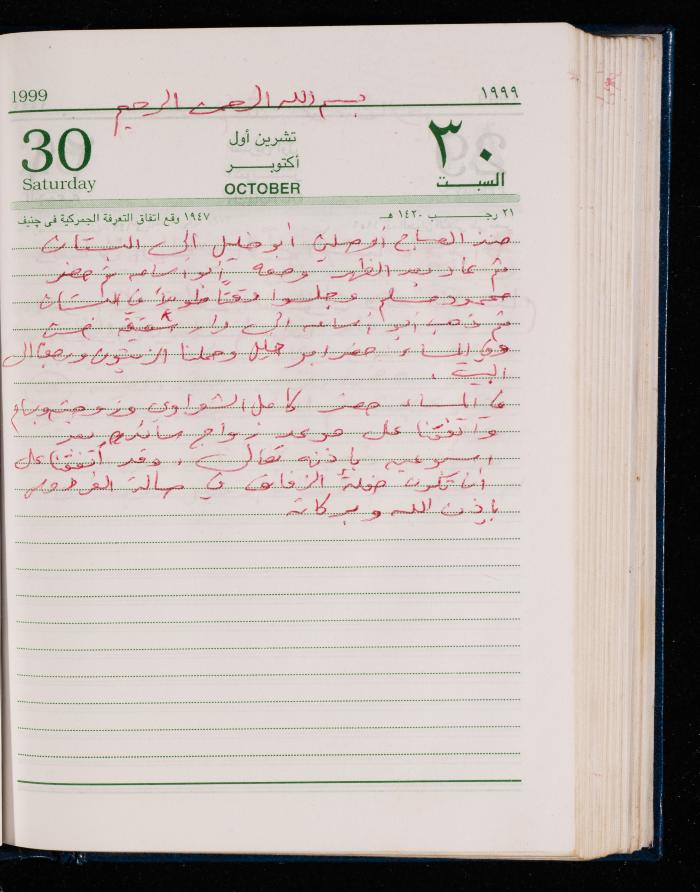 1999 ١٩٩٩
بسم الله الرحمن الرحيم
30 تشرين أول ٣٠
أكتوبر
Saturday OCTOBER السبت
٢١ رجب ١٤٢٠ هـ ١٩٤٧ وقع اتفاق التعرفة الجمركية في جنيف
منذ الصباح أوصلني أبو خليل الى البستان
ثم عاد بعد الظهر ومعه أبو أسامه ثم حضر
محمود مسلم وجلسوا وقتاً طويلاً في البستان
ثم ذهب أبو أسامه الى دار شقيقه
وفي المساء حضر ابو خليل وحملنا الزيتون ورجعنا الى
البيت .
في المساء حضر كامل الشواوى وزوجته
واتفقنا على موعد زواج بعد
اسبوعين بإذنه تعالى ، وقد أتفقنا على
أن تكون حفلة الزفاف في صالة
بإذن الله وبركاته